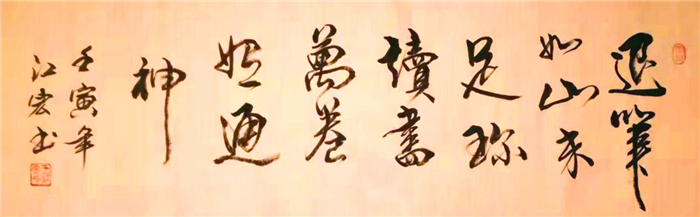 退筆
如山未
足珍
讀書
萬卷
始通
神
壬寅年
江宏书